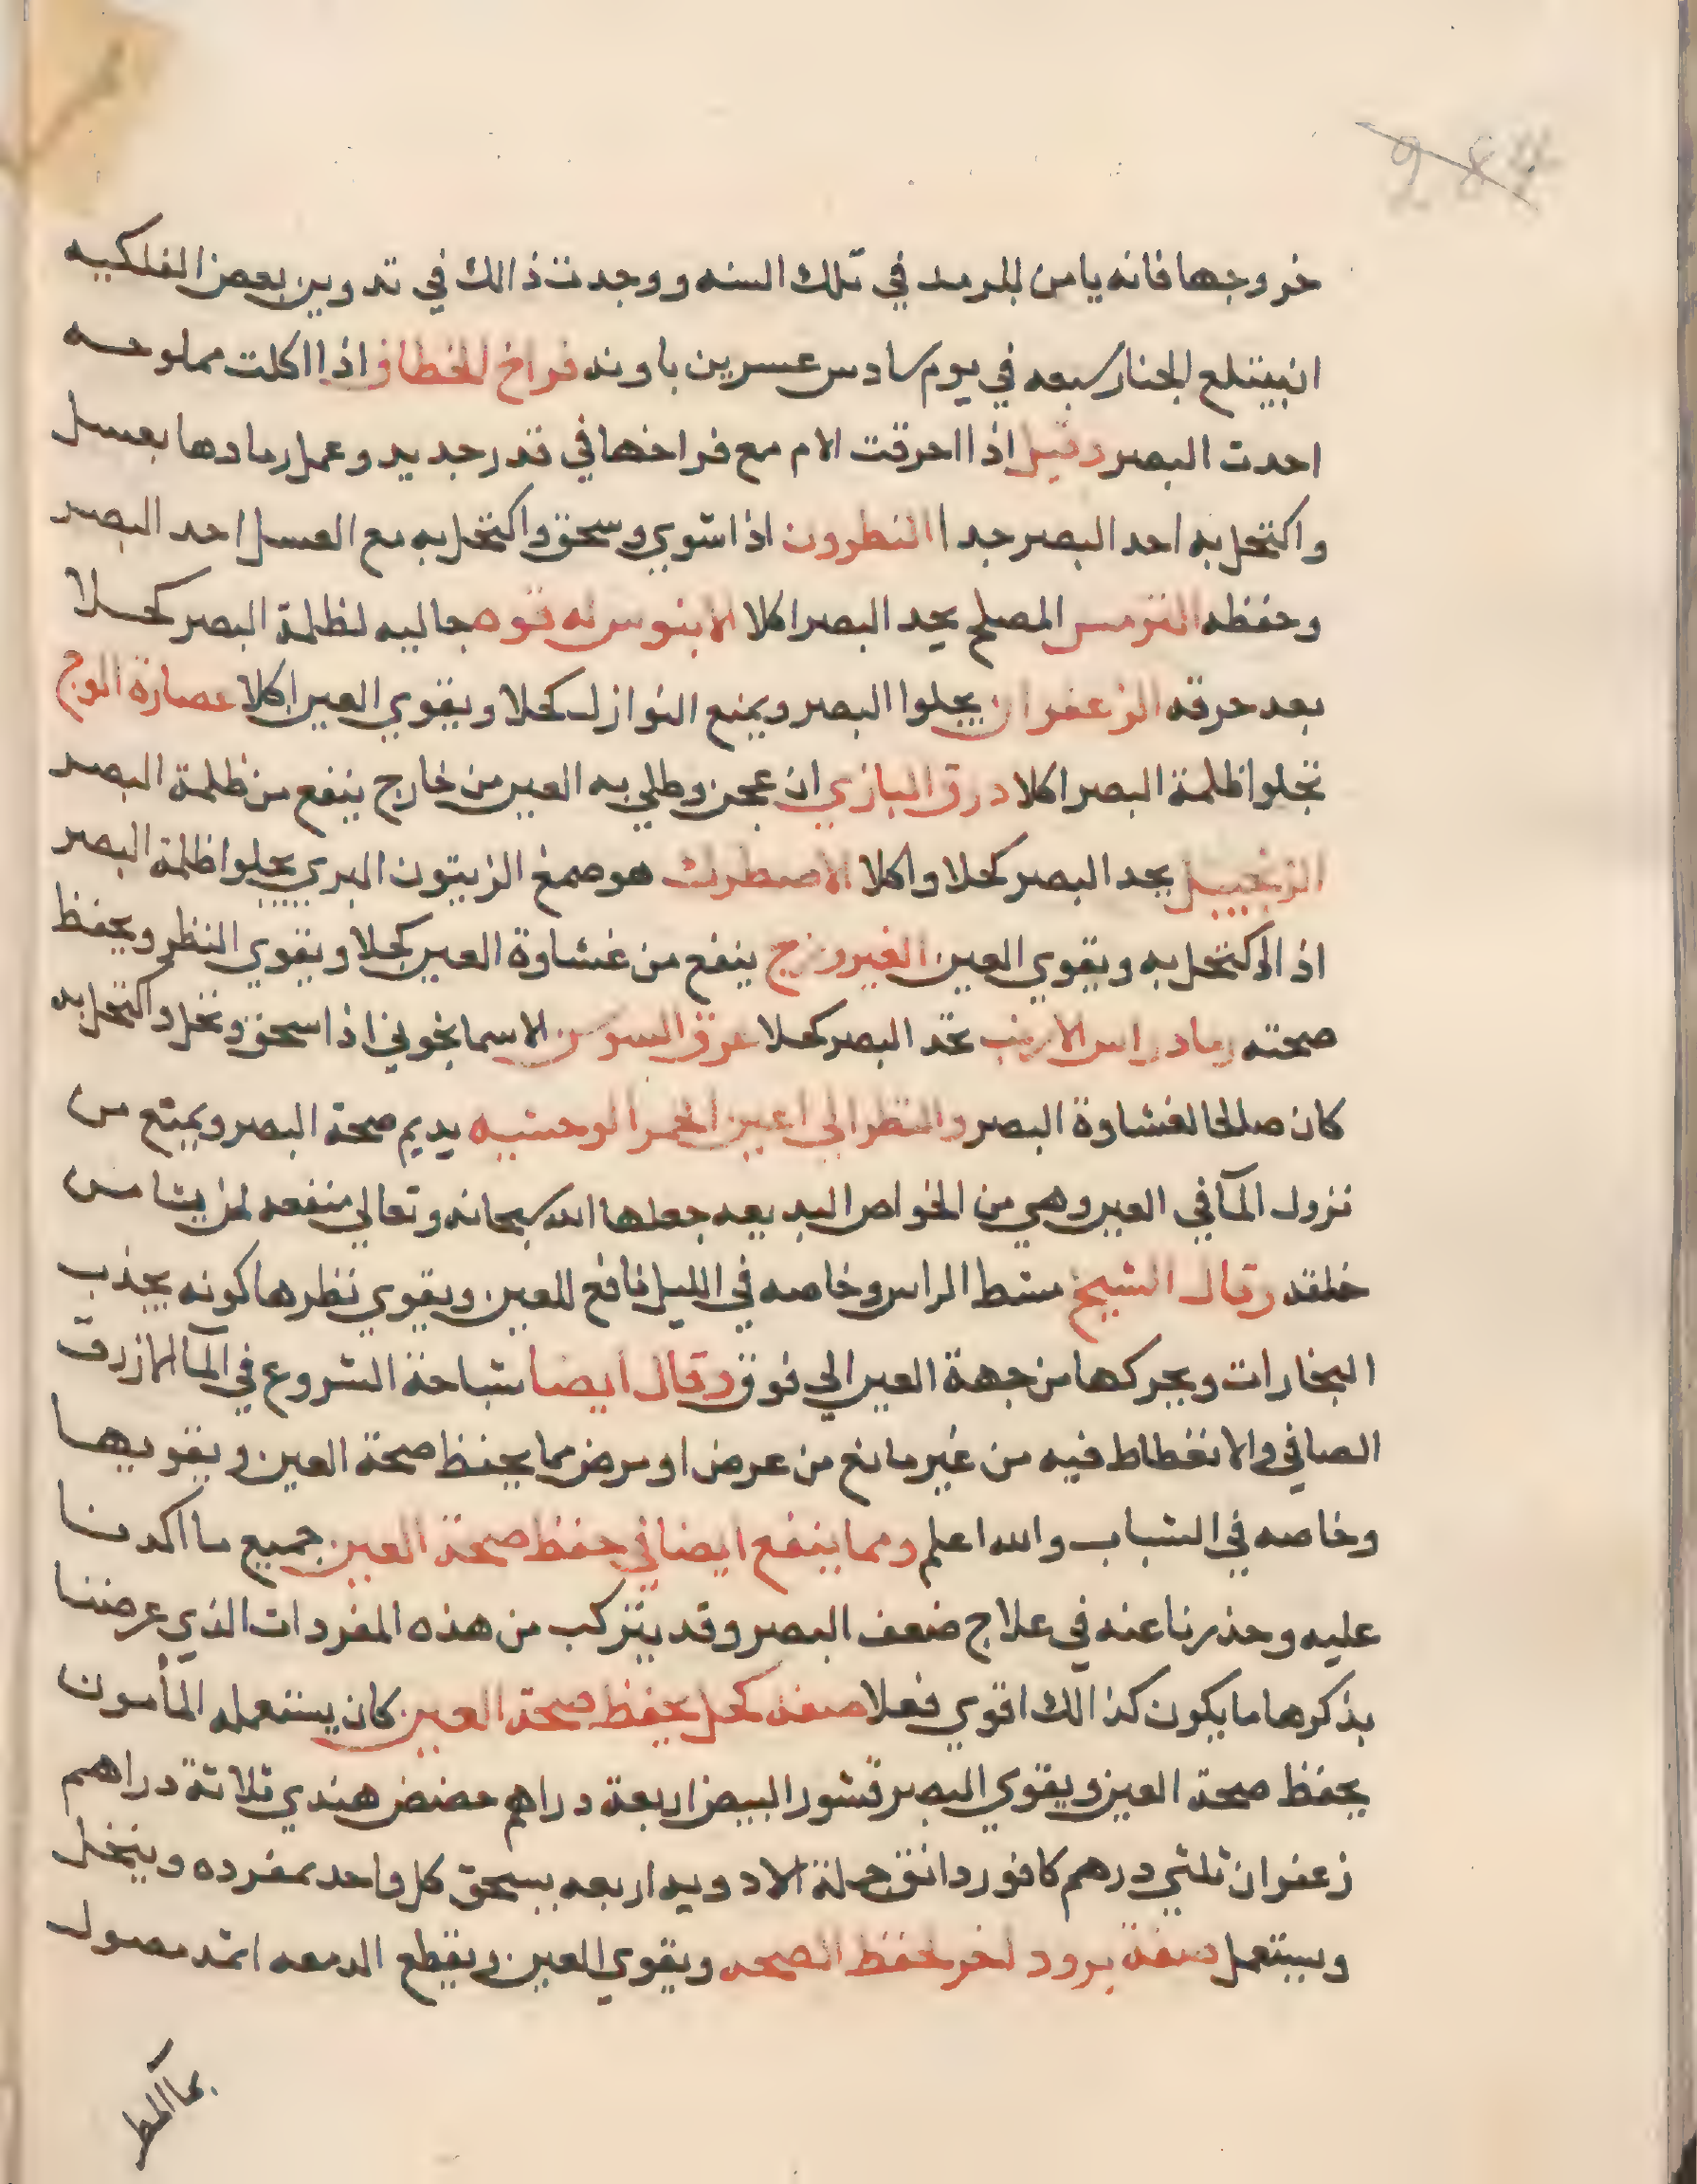 خروجها فانه يامن الرمد في تلك السنه ووجدت ذالك في تدوين بعض الفلكيه
ان يبتلع الجنار سبعه في يوم سادس عسرين باونه فراخ الخطاف اذا اكلت مملوحه
احدت البصر وقيل اذا احرقت الام مع فراخها في قدر جديد وعمل رمادها بعسل
واكتحل به احد البصر جدا النطرون اذا شوي وسحق واكتحل به مع العسل احد البصر
وحفظه الترمس المصلح يحد البصر اكلا الابنوس له قوه جاليه لظلمة البصر كحلا
بعد حرقه الزعفران يجلوا البصر ويمنع النوازل كحلا ويقوي العين اكلا عصارة الوج
تجلوا ظلمة البصر اكلا درق البازي ان عجن وطلي به العين من خارج ينفع من ظلمة البصر
الزنجبيل يحد البصر كحلا واكلا الاصطرك هو صمغ الزيتون البري يجلوا ظلمة البصر
اذا اكتحل به ويقوي العين الفيروزج ينفع من غشاوة العين كحلا ويقوي النظر ويحفظ
صحته رماد راس الارنب تحد البصر كحلا عرق السوسن الاسمانجوني اذا سحق ونخل واكتحل به
كان صالحا لغشاوة البصر والنظر الي اعين الحمر الوحشيه يديم صحة البصر ويمنع من
نزول المآ في العين وهي من الخواص البديعه جعلها الله سبحانه وتعالي منفعه لمن يشا من
خلقه وقال الشيخ مشط الراس وخاصه في الليل نافع للعين ويقوي نظرها كونه يجذب
البخارات ويحركها من جهة العين الي فوق وقال ايضا شباحة الشروع في المآ الازرق
الصافي والانغطاط فيه من غير مانع من عرض او مرض مما يحفظ صحة العين ويقويها
وخاصه في الشباب والله اعلم ومما ينفع ايضا في حفظ صحة العين جميع ما اكدنا
عليه وحذرنا عنه في علاج ضعف البصر وقد يتركب من هذه المفردات الذي عرضنا
بذكرها ما يكون كذالك اقوي فعلا صفة كحل يحفظ صحة العين كان يستعمله المأمون
يحفظ صحة العين ويقوي البصر قشور البيض اربعة دراهم حضض هندي ثلاثة دراهم
زعفران ثلثي درهم كافور دانق جملة الادويه اربعه يسحق كل واحد بمفرده وينخل
ويستعمل صفة برود اخر لحفظ الصحه ويقوي العين ويقطع الدمعه اثمد مصول
بما المطر